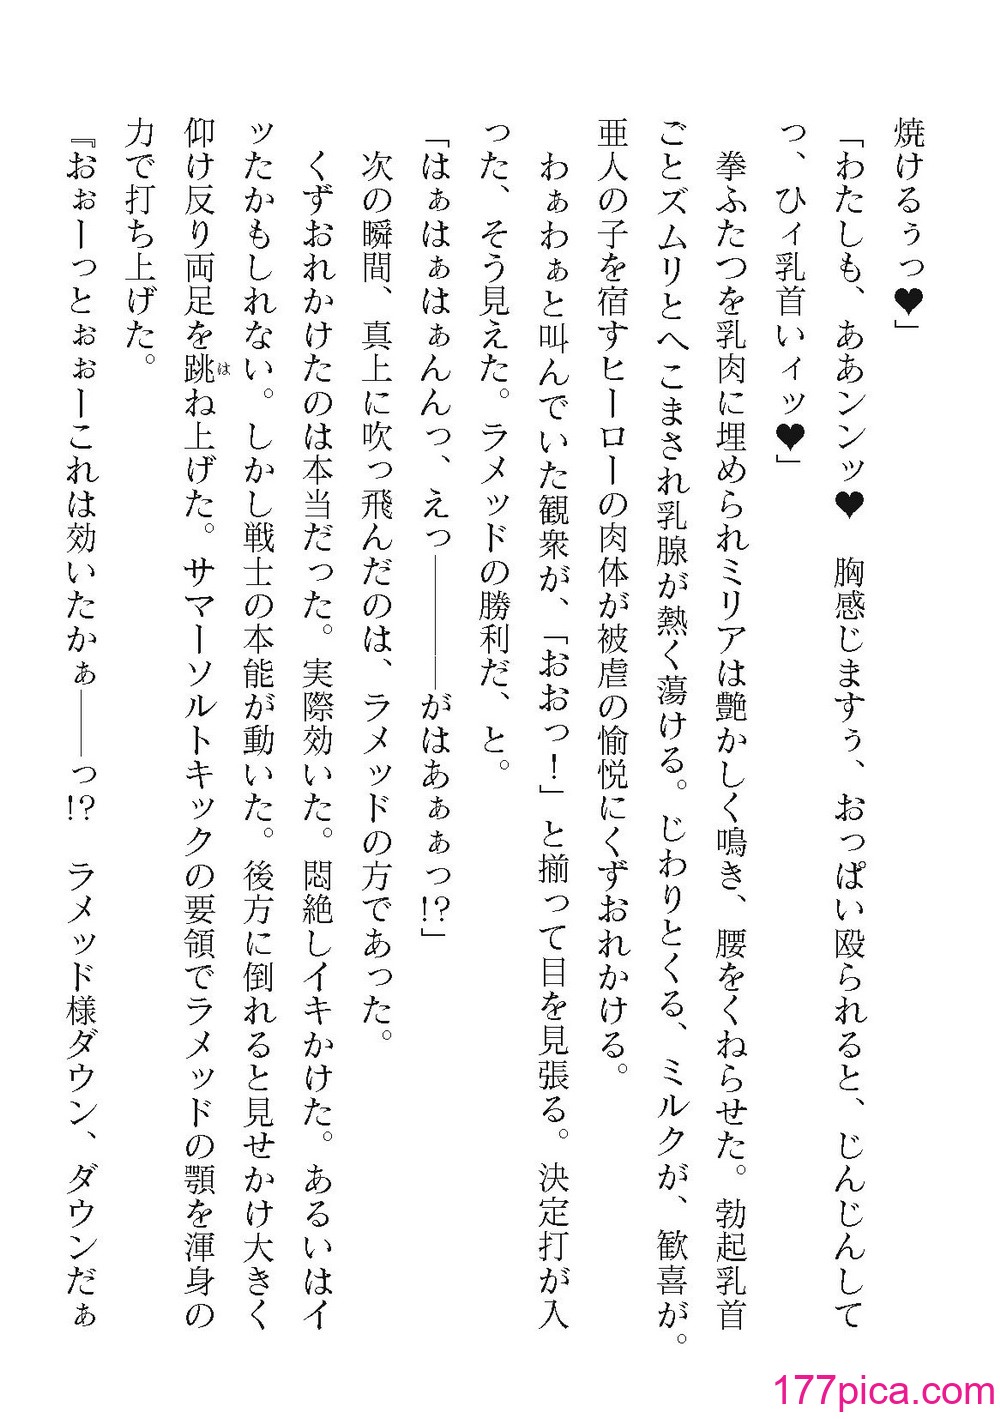 焼けるぅっ♥」
「わたしも、ああンンッ♥　胸感じますぅ、おっぱい殴られると、じんじんして
っ、ひィ乳首いィッ♥」
　拳ふたつを乳肉に埋められミリアは艶かしく鳴き、腰をくねらせた。勃起乳首
ごとズムリとへこまされ乳腺が熱く蕩ける。じわりとくる、ミルクが、歓喜が。
亜人の子を宿すヒーローの肉体が被虐の愉悦にくずおれかける。
　わぁわぁと叫んでいた観衆が、「おおっ！」と揃って目を見張る。決定打が入
った、そう見えた。ラメッドの勝利だ、と。
「はぁはぁはぁんんっ、えっ――――がはあぁぁっ!?」
　次の瞬間、真上に吹っ飛んだのは、ラメッドの方であった。
　くずおれかけたのは本当だった。実際効いた。悶絶しイキかけた。あるいはイ
ッたかもしれない。しかし戦士の本能が動いた。後方に倒れると見せかけ大きく
仰け反り両足を跳ね上げた。サマーソルトキックの要領でラメッドの顎を渾身の
は
力で打ち上げた。
『おぉーっとぉぉーこれは効いたかぁ――っ!?　ラメッド様ダウン、ダウンだぁ
177pica.com